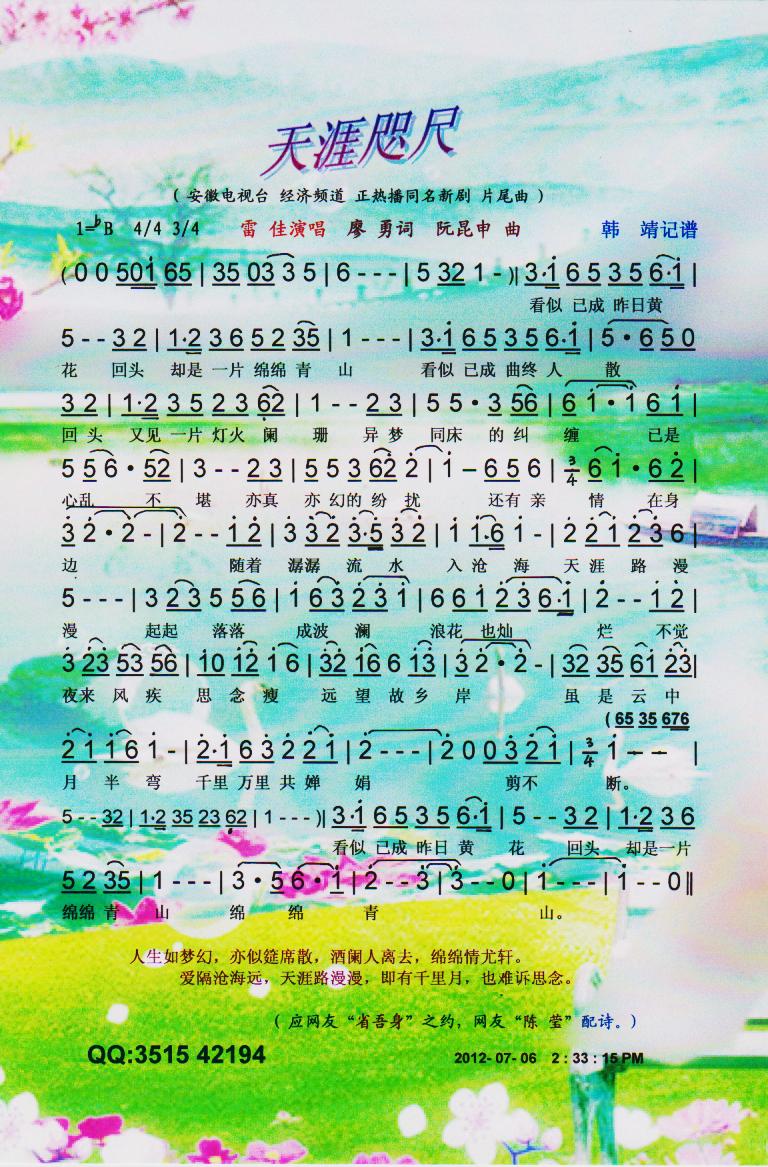 天涯咫尺
( 安徽电视台 经济频道 正热播同名新剧 片尾曲 )
1=♭B 4/4 3/4 雷 佳演唱 廖 勇词 阮昆申 曲 韩 靖记谱
( 0 0 501 65 | 35 03 3 5 | 6 - - - | 5 32 1 - )| 3·1 6 5 3 5 6·1 |
看似 已成 昨日黄
5 - - 3 2 | 1·2 3 6 5 2 35 | 1 - - - | 3·1 6 5 3 5 6·1 | 5 · 6 5 0
花 回头 却是 一片 绵绵 青 山 看似 已成 曲终 人 散
3 2 | 1·2 3 5 2 3 62 | 1 - - 2 3 | 5 5 · 3 56 | 6 1 · 1 6 1 |
回 头 又见 一片 灯火 阑 珊 异 梦 同床 的 纠 缠 已是
5 5 6 · 52 | 3 - - 2 3 | 5 5 3 62 2 | 1 - 6 5 6 | 3/4 6 1 · 6 2 |
心乱 不 堪 亦真 亦 幻的 纷 扰 还有 亲 情 在身
3 2 · 2 - | 2 - - 1 2 | 3 3 2 3·5 3 2 | 1 1·6 1 - | 2 2 1 2 3 6 |
边 随着 潺潺 流 水 入 沧 海 天 涯 路 漫
5 - - - | 3 2 3 5 5 6 | 1 6 3 2 3 1 | 6 6 1 2 3 6·1 | 2 - - 1 2 |
漫 起起 落落 成波 澜 浪花 也灿 烂 不觉
3 23 53 56 | 10 12 1 6 | 32 16 6 13 | 3 2 · 2 - | 32 35 61 23|
夜来 风 疾 思 念 瘦 远 望 故 乡 岸 虽 是 云 中
( 65 35 676
2 1 1 6 1 - | 2·1 6 3 2 2 1 | 2 - - - | 2 0 0 3 2 1 | 3/4 1 - - |
月 半 弯 千里 万里 共 婵 娟 剪不 断。
5 - - 32 | 1·2 35 23 62 | 1 - - - )| 3·1 6 5 3 5 6·1 | 5 - - 3 2 | 1·2 3 6
看似 已成 昨日 黄 花 回头 却是一片
5 2 35 | 1 - - - | 3 · 5 6 · 1 | 2 - - 3 | 3 - - 0 | 1 - - - | 1 - - 0 ‖
绵绵 青 山 绵 绵 青 山。
人生如梦幻，亦似筵席散，酒阑人离去，绵绵情尤轩。
爱隔沧海远，天涯路漫漫，即有千里月，也难诉思念。
( 应网友“省吾身”之约，网友“陈 莹”配诗。)
QQ:3515 42194 2012- 07- 06 2 : 33 : 15 PM